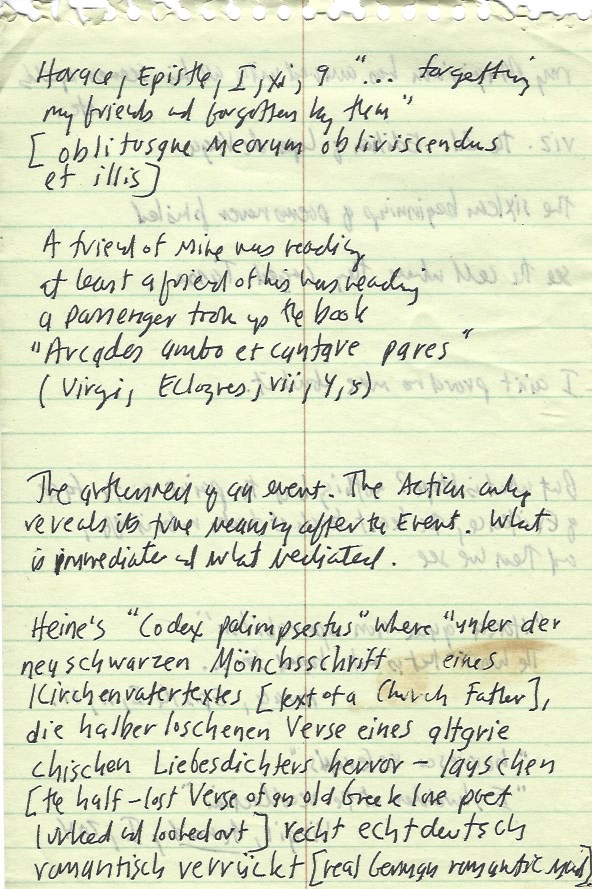 Horace, Epistle, I, xi, 9 "... forgetting
my friends and forgotten by them"
[oblitusque meorum obliviscendus
et illis]
A friend of mine was reading
at least a friend of his was reading
a passenger took up the book
"Arcades ambo et cantare pares"
(Virgi, Eclogues, vii, 4, 5)
The of an event. The Action only
reveals its true meaning after the Event. What
is immediate and what mediated.
Heine's "Codex palimpsestus" where "unter der
neuschwarzen Mönchsschrift eines
Kirchenvatertextes [text of a Church Father],
die halber loschenen Verse eines altgrie
chischen Liebesdichters hervor - lauschen
[the half-lost Verse of an old Greek love poet
lurked and looked out] recht echtdeutsch
romantisch verrückt [real German romantic mad]